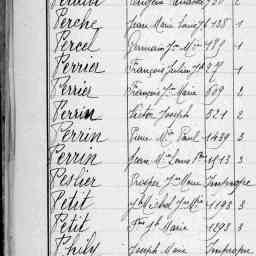 Perche Jean Marie Louis J. 138 1
Percel Germain Jn Mie 189 1
Perrier François Julien Jh 27 1
Perrier François Jn Marie 609 2
Perrin Victor Joseph 521 2
Perrin Pierre Mie Paul 1439 3
Perrin Jean Mie Louis 1513 3
Peslier Prosper Jn Marie Impropre
Petit Michel Jn Mie 1193 3
Petit Jn Marie 1293 3
Phily Joseph Marie Impropre